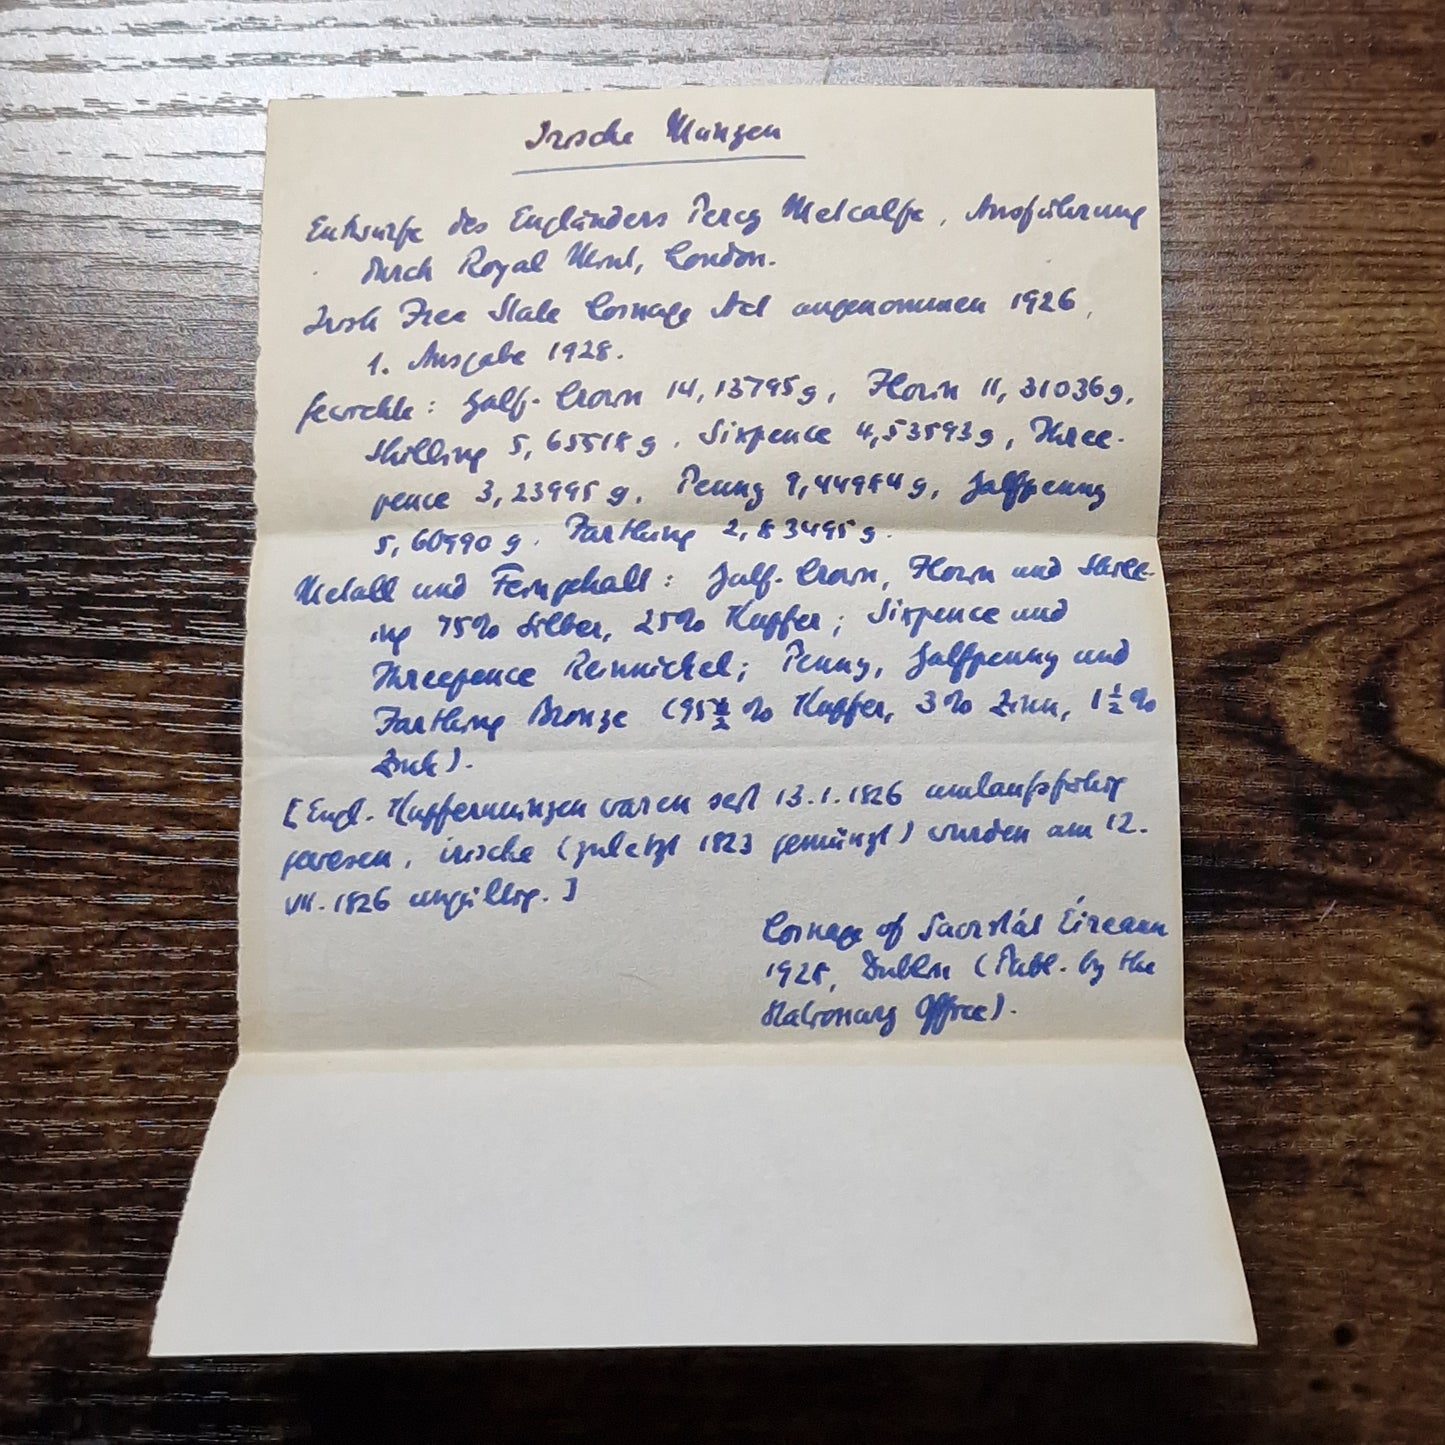 Irische Münzen
Entwürfe des Engländers Percy Metcalfe, Ausführung
durch Royal Mint, London.
Irish Free State Coinage Act angenommen 1926,
1. Ausgabe 1928.
Gewichte: Half-Crown 14,13795g, Florin 11,31036g,
Shilling 5,65518 g, Sixpence 4,53593g, Three-
pence 3,23995 g, Penny 9,44984g, Halfpenny
5,66990 g. Farthing 2,83495g.
Metall und Feingehalt: Half-Crown, Florin und Shill-
ing 75% Silber, 25% Kupfer; Sixpence und
Threepence Reinnickel; Penny, Halfpenny und
Farthing Bronze (95½% Kupfer, 3% Zinn, 1½%
Zink).
[Engl. Kupfermünzen waren seit 13.1.1826 umlaufsfähig
gewesen, irische (zuletzt 1823 gemünzt) wurden am 12.
VII. 1826 ungültig.]
Coinage of Saorstát Éireann
1928, Dublin (Publ. by the
Stationary Office).